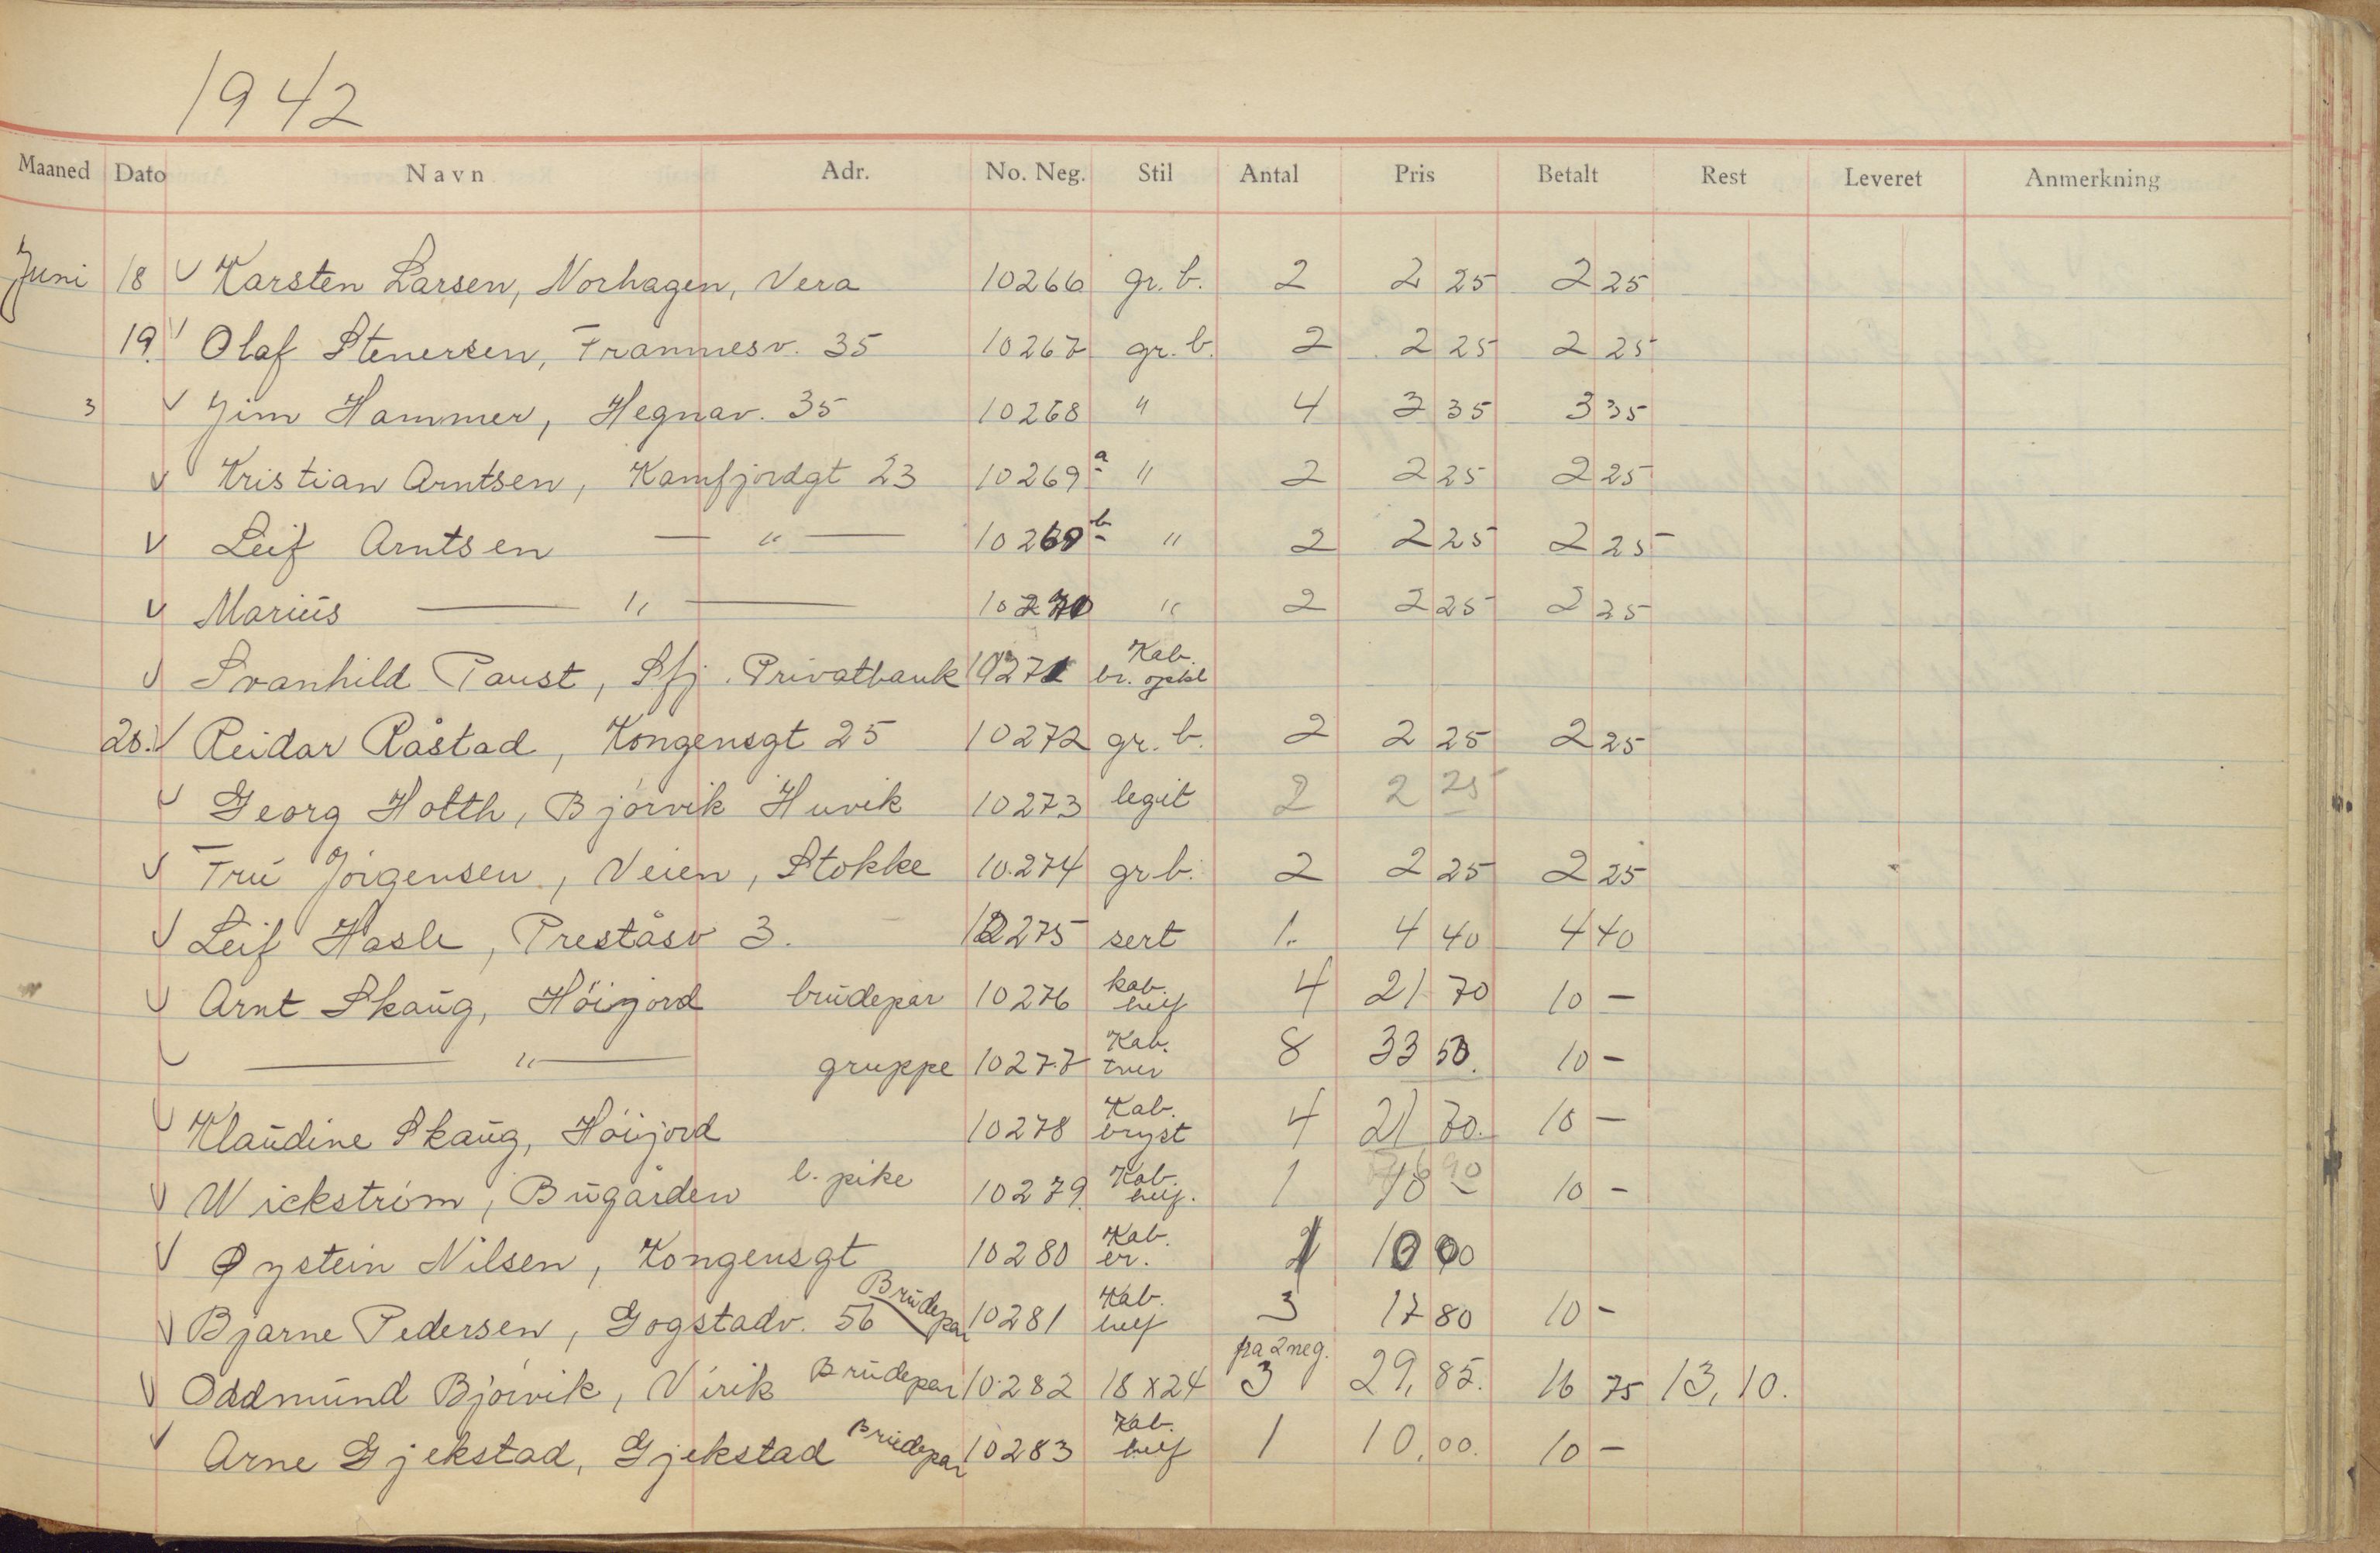 1942
Maaned Dato Navn Adr. No. Neg. Stil Antal Pris Betalt Rest Leveret Anmerkning
Juni 18 √ Karsten Larsen, Norhagen, Vera 10266 gr. b. 2 2 25 2 25
19. √ Olaf Stenersen, Framnesv. 35 10267 gr. b. 2 2 25 2 25
3 √ Jim Hammer, Hegnav. 35 10268 " 4 3 35 3 35
√ Kristian Arntsen, Kamfjordgt 23 10269 a " 2 2 25 2 25
√ Leif Arntsen — " — 10269 b " 2 2 25 2 25
√ Marius — " — 10270 " 2 2 25 2 25
√ Svanhild Paust, Sfj. Privatbank 10271 Kab. br.
20. √ Reidar Råstad, Kongensgt 25 10272 gr. b. 2 2 25 2 25
√ Georg Holth, Bjørvik Huvik 10273 legit 2 2 25
√ Fru Jørgensen, Veien, Stokke 10274 gr b. 2 2 25 2 25
√ Leif Hasle, Preståsv 3. 10275 sert 1. 4 40 4 40
√ Arnt Skaug, Höijord brudepar 10276 kab. helf 4 21 70 10 —
√ — " — gruppe 10277 Kab. tver 8 33 50. 10 —
√ Klaudine Skaug, Höijord 10278 Kab. bryst 4 21 70. 10 —
√ Wickström, Bugården l. pike 10279. Kab. helf. 1 10 —
√ Øystein Nilsen, Kongensgt 10280 Kab. br. 1 10 00
√ Bjarne Pedersen, Gogstadv. 56 Brudepar 10281 Kab. helf 3 17 80 10 —
√ Oddmund Bjørvik, Virik Brudepar 10282 18 x 24 fra 2 neg. 3 29, 85. 16 75 13, 10.
√ Arne Gjekstad, Gjekstad Brudepar 10283 Kab. helf 1 10, 00. 10 —